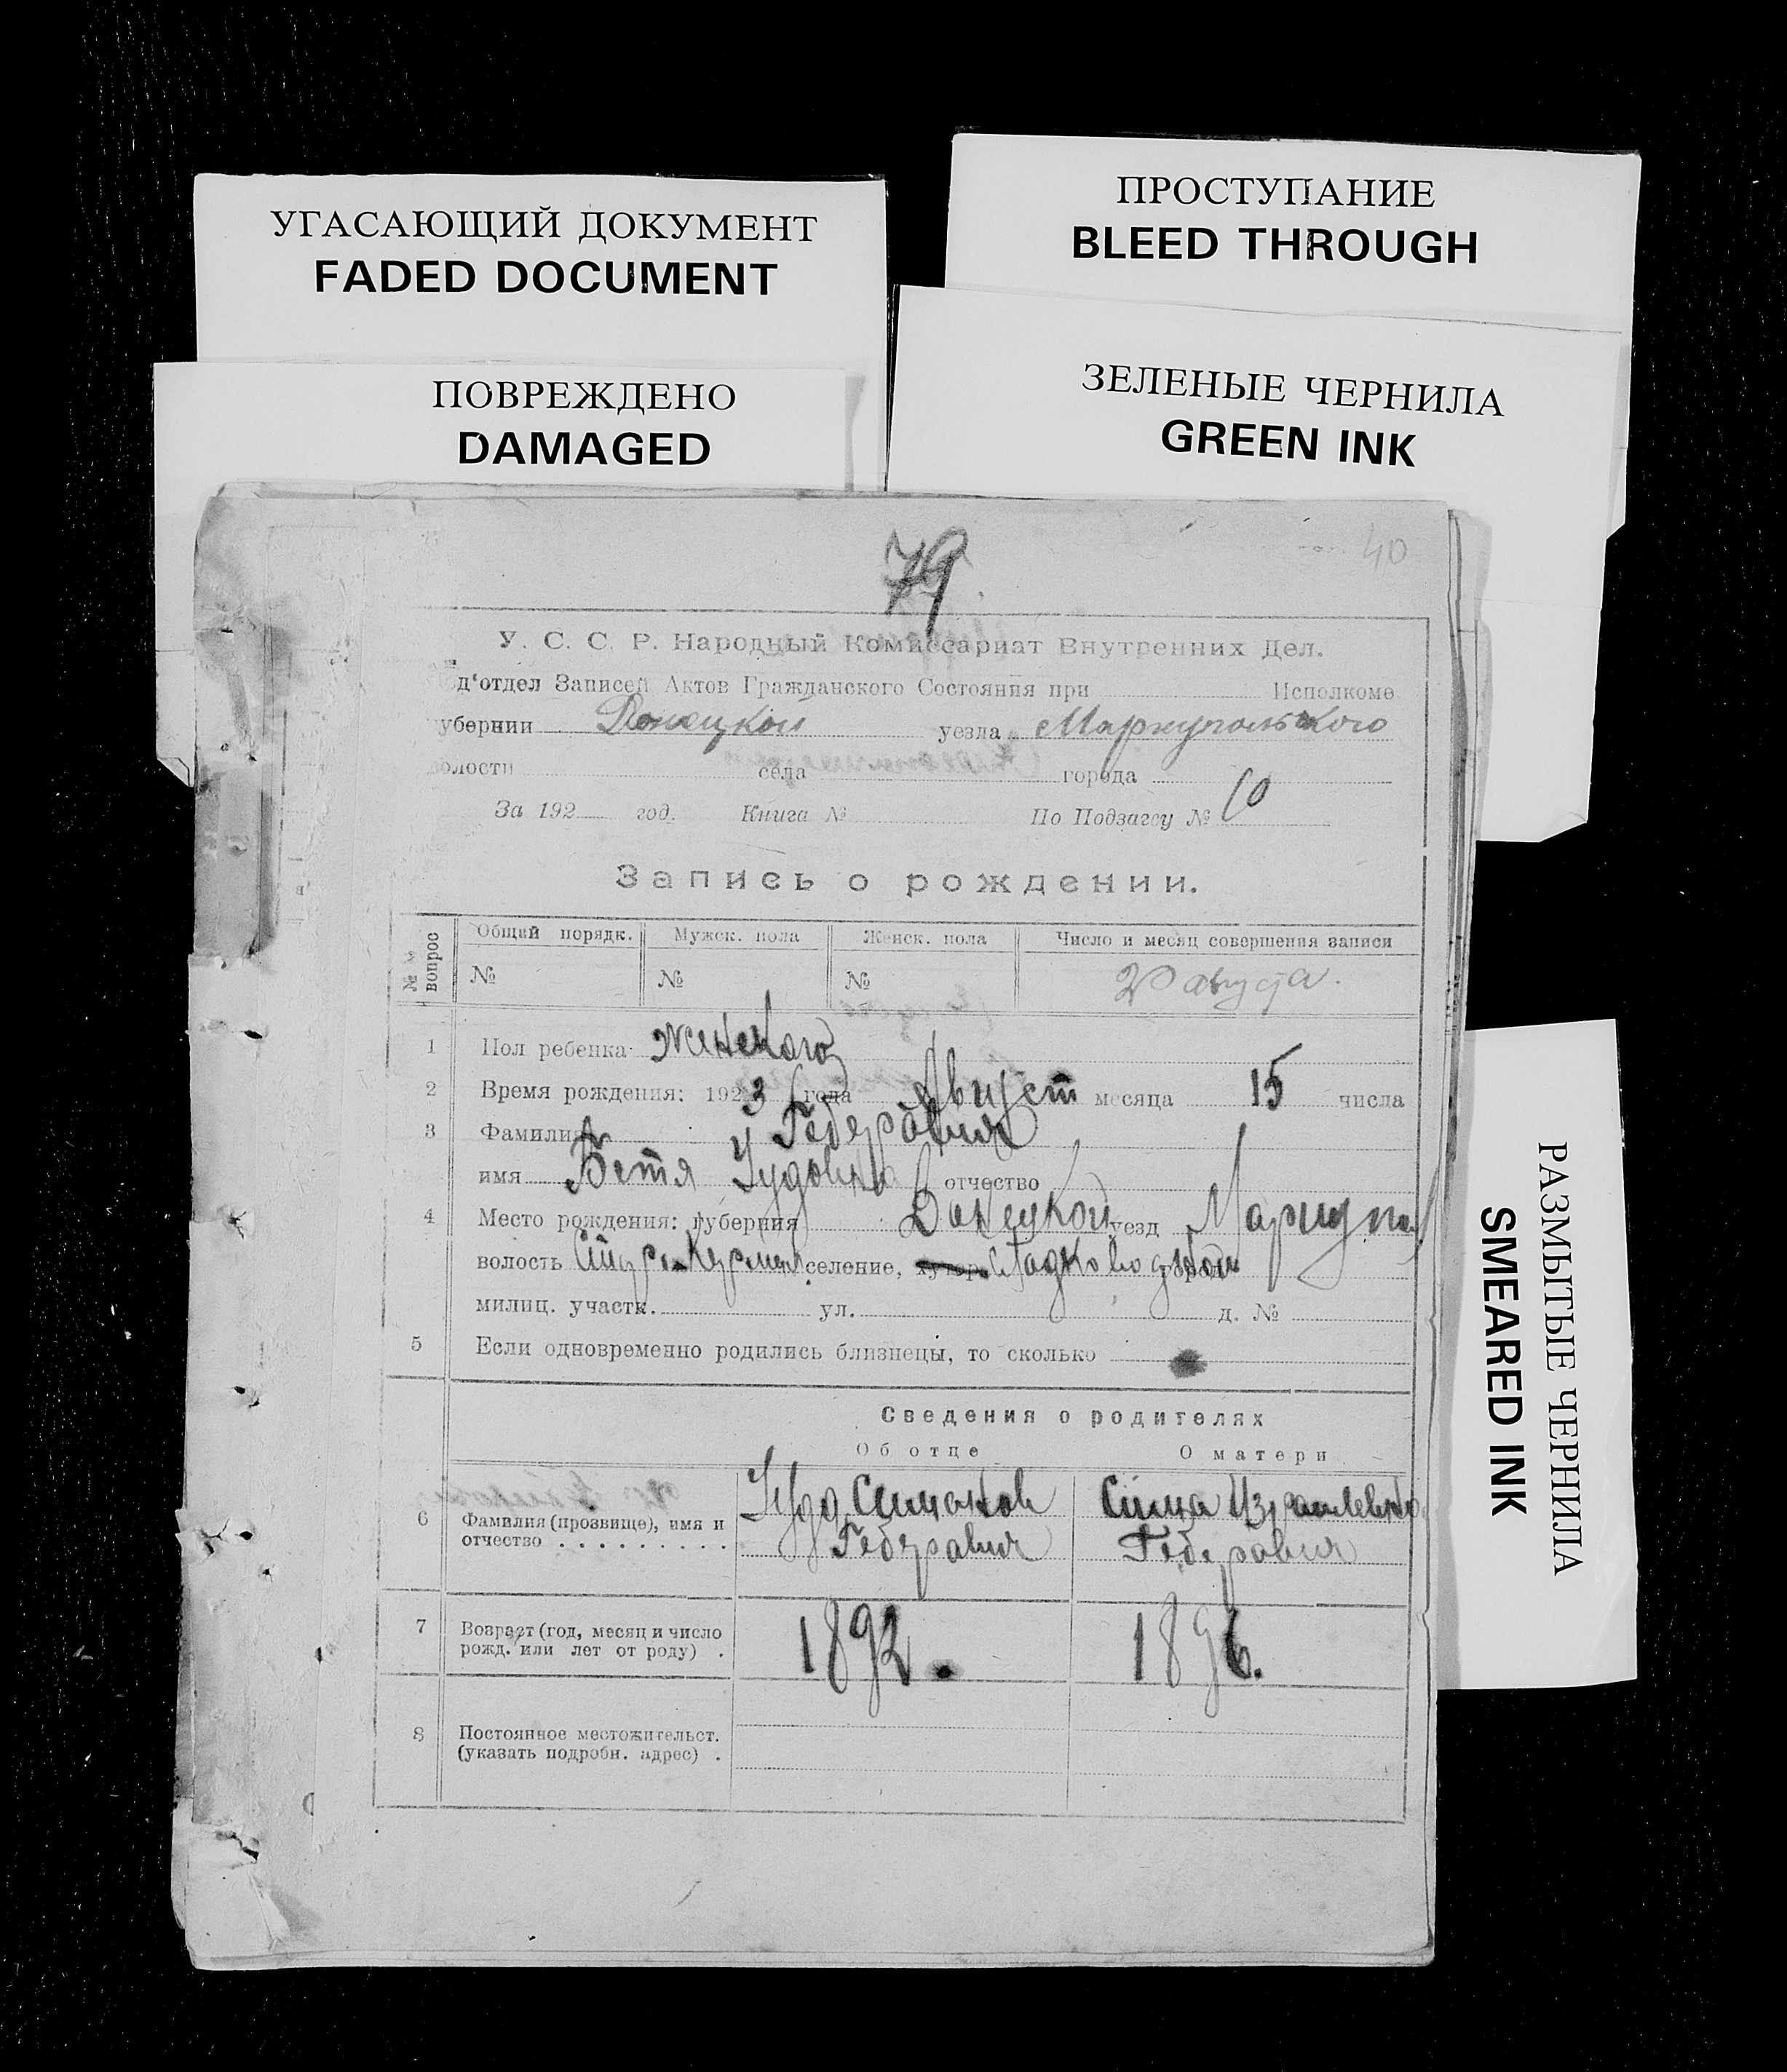 УГАСАЮЩИЙ ДОКУМЕНТ
FADED DOCUMENT
ПРОСТУПАНИЕ
BLEED THROUGH
ПОВРЕЖДЕНО
DAMAGED
ЗЕЛЕНЫЕ ЧЕРНИЛА
GREEN INK
79
40
У. С. С. Р. Народный Комиссариат Внутренних Дел.
д'отдел Записей Актов Гражданского Состояния при Исполкоме
убернии Донецкой уезда Мариупольского
волости села города
За 192 год. Книга № По Подзагсу № 10
Запись о рождении.
№ № вопрос Общий порядк. Мужск. пола Женск. пола Число и месяц совершения записи
№ № № 20 августа.
1 Пол ребенка женскаго
2 Время рождения: 1923 года Август месяца 15 числа
3 Фамилия Гедерович
имя Бетя Удовна отчество
4 Место рождения: губерния Донецкой уезд Мариупол
волость селение, хутор, Сладководной город
милиц. участк. ул. д. №
5 Если одновременно родились близнецы, то сколько
Сведения о родителях
Об отце О матери
6 Фамилия (прозвище), имя и отчество . . . . . . . . . Симонов Сима Израилевна
Гедерович Гедерович
7 Возраст (год, месяц и число рожд. или лет от роду) . 1892. 1896.
8 Постоянное местожительст. (указать подробн. адрес) .
РАЗМЫТЫЕ ЧЕРНИЛА
SMEARED INK